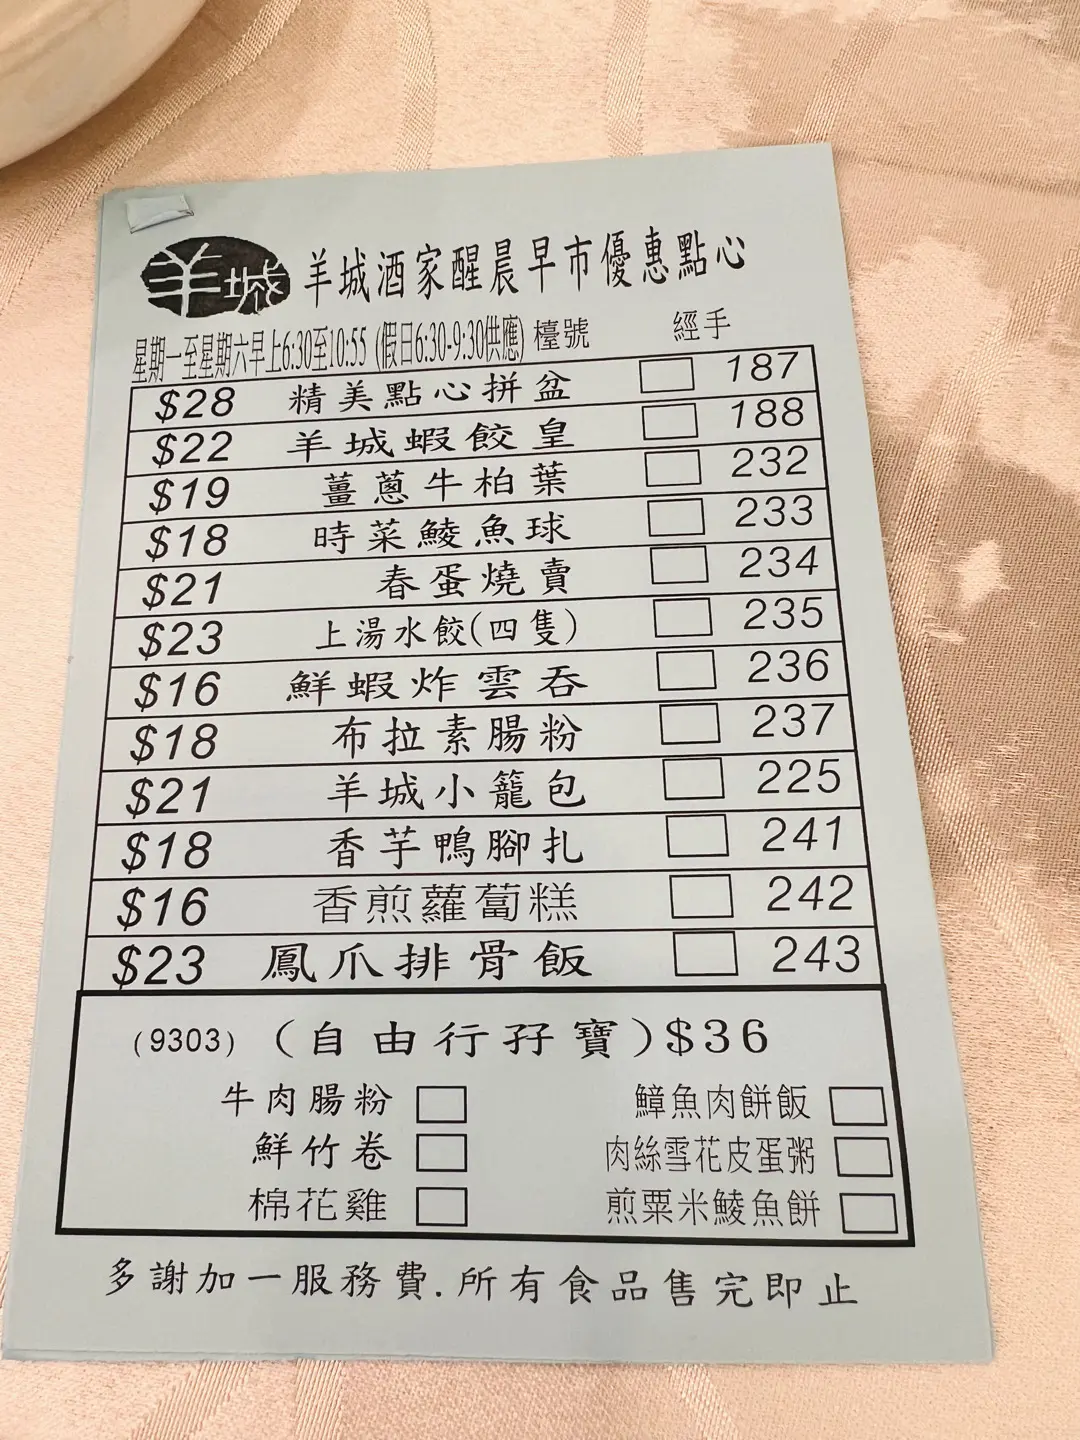 羊城 羊城酒家醒晨早市優惠點心
星期一至星期六早上6:30至10:55 (假日6:30-9:30供應) 檯號 經手
$28 精美點心拼盆 187
$22 羊城蝦餃皇 188
$19 薑蔥牛柏葉 232
$18 時菜鯪魚球 233
$21 春蛋燒賣 234
$23 上湯水餃(四隻) 235
$16 鮮蝦炸雲吞 236
$18 布拉素腸粉 237
$21 羊城小籠包 225
$18 香芋鴨腳扎 241
$16 香煎蘿蔔糕 242
$23 鳳爪排骨飯 243
(9303) (自由行孖寶)$36
牛肉腸粉 鱆魚肉餅飯
鮮竹卷 肉絲雪花皮蛋粥
棉花雞 煎粟米鯪魚餅
多謝加一服務費.所有食品售完即止